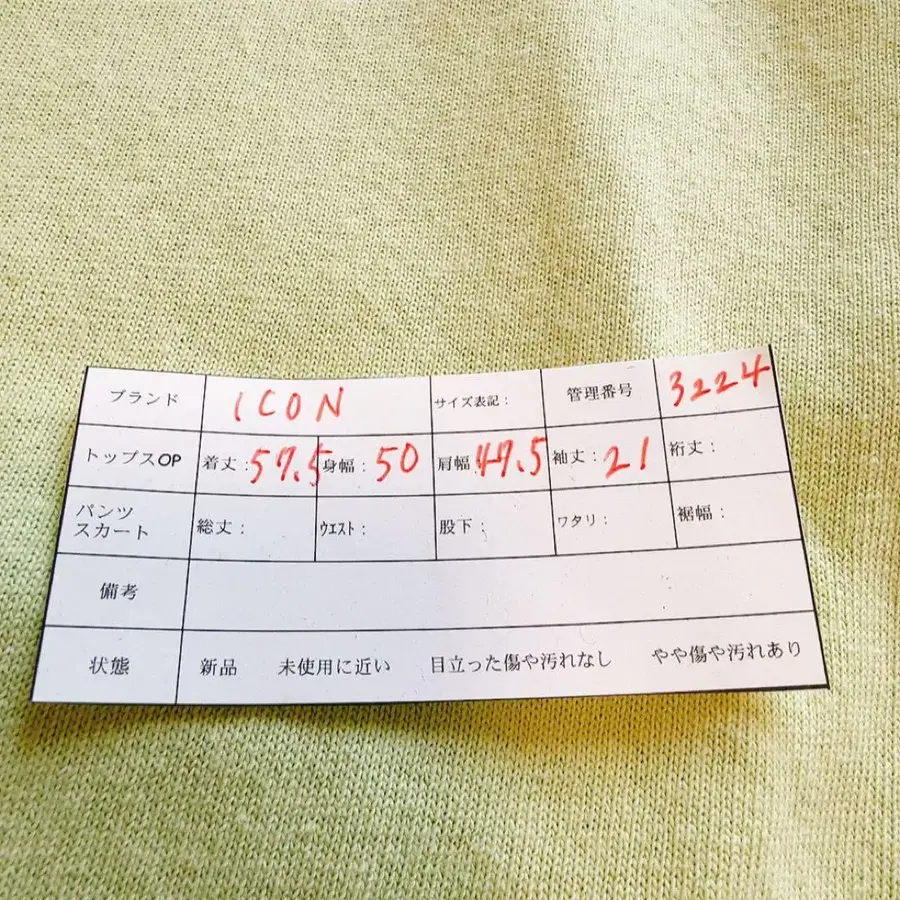 ブランド ICON サイズ表記: 管理番号 3224
トップスOP 着丈:57.5 身幅:50 肩幅:47.5 袖丈:21 裄丈:
パンツ
スカート 総丈: ウエスト: 股下: ワタリ: 裾幅:
備考
状態 新品 未使用に近い 目立った傷や汚れなし やや傷や汚れあり